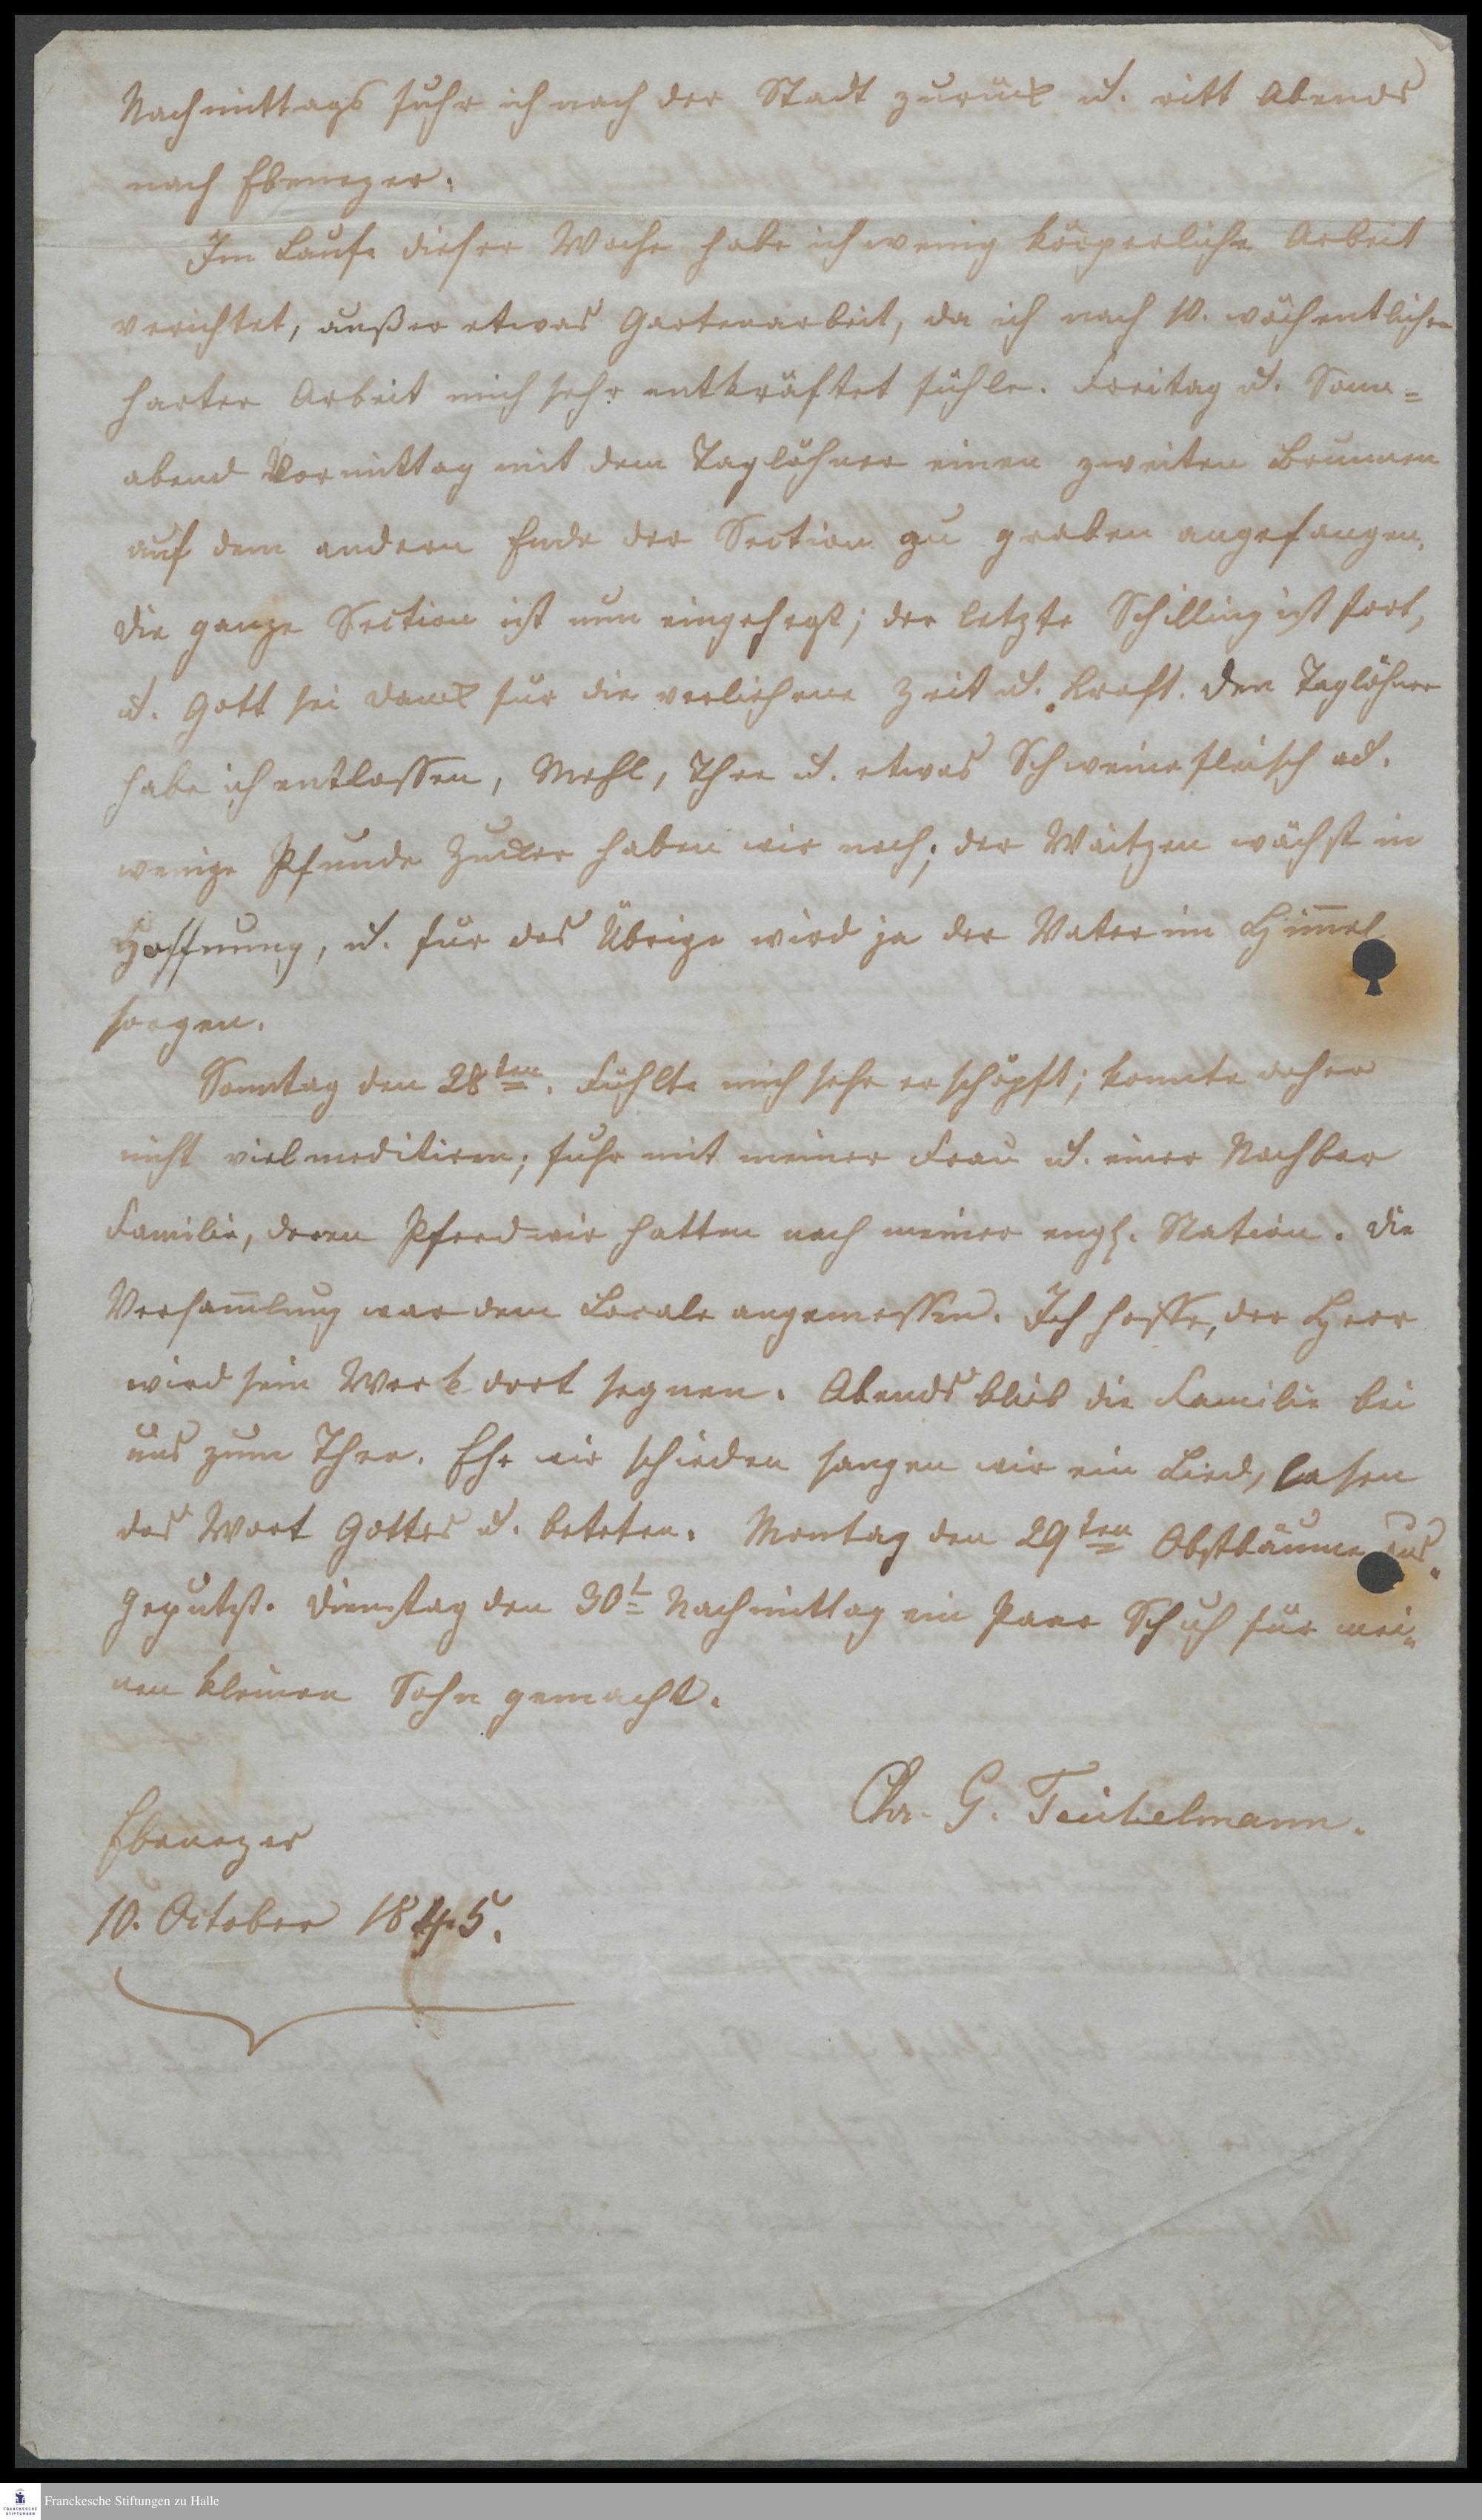 Nachmittags fuhr ich nach der Stadt zurück u. ritt Abends
nach Ebenezer.
Im Laufe dieser Woche habe ich wenig körperliche Arbeit
verichtet, außer etwas Gartenarbeit, da ich nach 10. wöchentlicher
harter Arbeit mich sehr entkräftet fühle. Freitag u. Sonn=
abend Vormittag mit dem Taglöhner einen zweiten Brunnen
auf dem andern Ende der Section zu graben angefangen.
Die ganze Section ist nun eingehegt; der letzte Schilling ist fort,
u. Gott sei Dank für die verliehene Zeit u. Kraft. Den Taglöhner
habe ich entlassen, Mehl, Thee u. etwas Schweinefleisch u.
wenige Pfunde Zucker haben wir noch; der Waitzen wächst in
Hoffnung, u. für das Übrige wird ja der Vater im Himel
sorgen.
Sonntag den 28ten. Fühlte mich sehr erschöpft; konnte daher
nicht viel meditiren; fuhr mit meiner Frau u. einer Nachbar
Familie, deren Pferd wir hatten nach meiner engl. Station. Die
Versamlung war dem Locale angemessen. Ich hoffe, der Herr
wird sein Werk dort segnen. Abends blieb die Familie bei
uns zum Thee. Ehe wir schieden sangen wir ein Lied, lasen
das Wort Gottes u. beteten. Montag den 29ten Obstbäume aus=
geputzt. Dienstag den 30t Nachmittag ein Paar Schuh für mei=
nen kleinen Sohn gemacht.
Chr. G. Teichelmann.
Ebenezer
10. October 1845.
Franckesche Stiftungen zu Halle